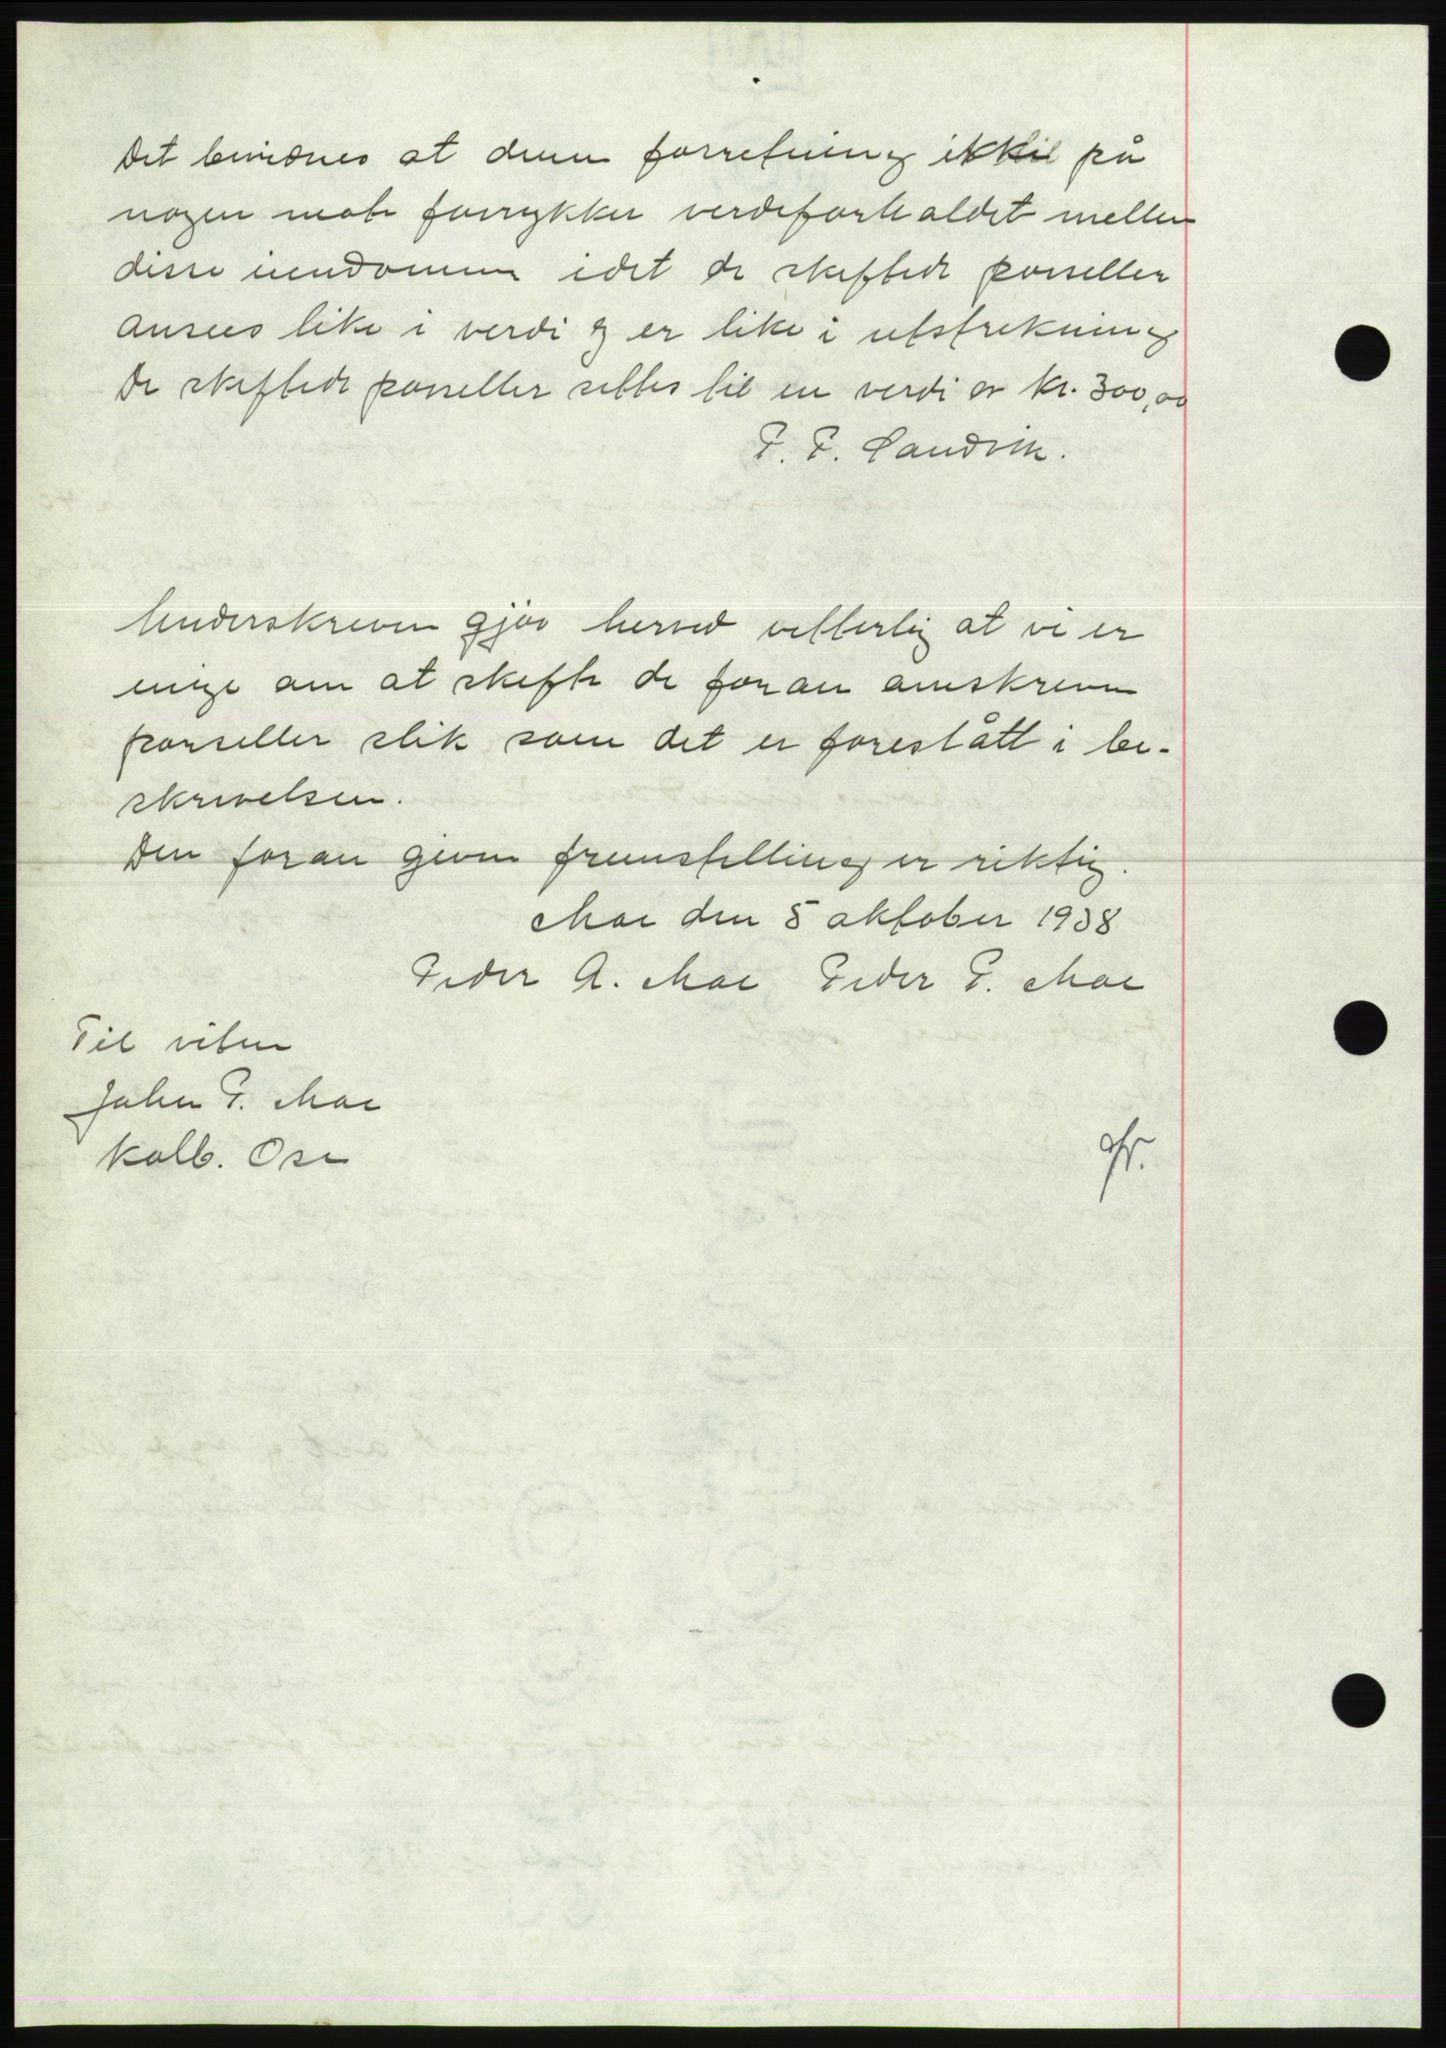 Det bevidnes at denne forretning ikke på
nogen mate forrykker verdeforhaldet mellem
disse iendomme idet de skiftede parseller
ansees like i verdi og er like i utstrekning
De skiftede parseller settes til en verdi av kr. 300,00
P. P. Sandvik.
Underskreven gjør herved vitterlig at vi er
enige om at skifte de foran omskrevne
parseller slik som det er forestått i be-
skrivelsen.
Den foran given fremstelling er riktig.
Moe den 5 oktober 1938
Peder A. Moe Peder P. Moe
Til vitne
John P. Moe
Kolb. Ose